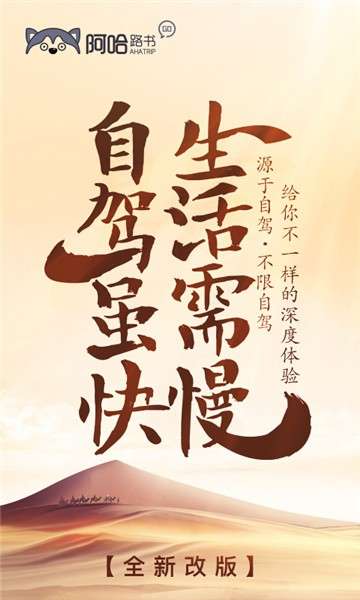 阿哈路书
GO
AHATRIP
给你不一样的深度体验
源于自驾·不限自驾
生活需慢
自驾虽快
【全新改版】